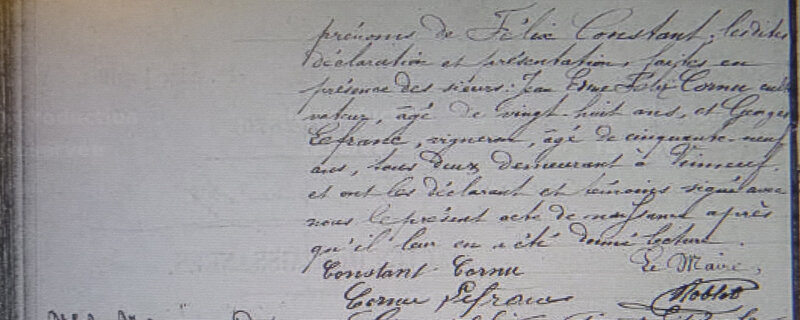 prénoms de Félix Constant, lesdites
déclaration et présentation, faites en
présence des sieurs : Jean Edme Félix Cornu culti
vateur, âgé de vingt-huit ans, et Georges
Lefranc, vigneron, âgé de cinquante-neuf
ans, tous deux demeurant à Vinneuf,
et ont les déclarant et témoins signé avec
nous le présent acte de naissance après
qu'il leur en a été donné lecture.
Constant Cornu Le Maire,
Cornu Lefranc Noblet